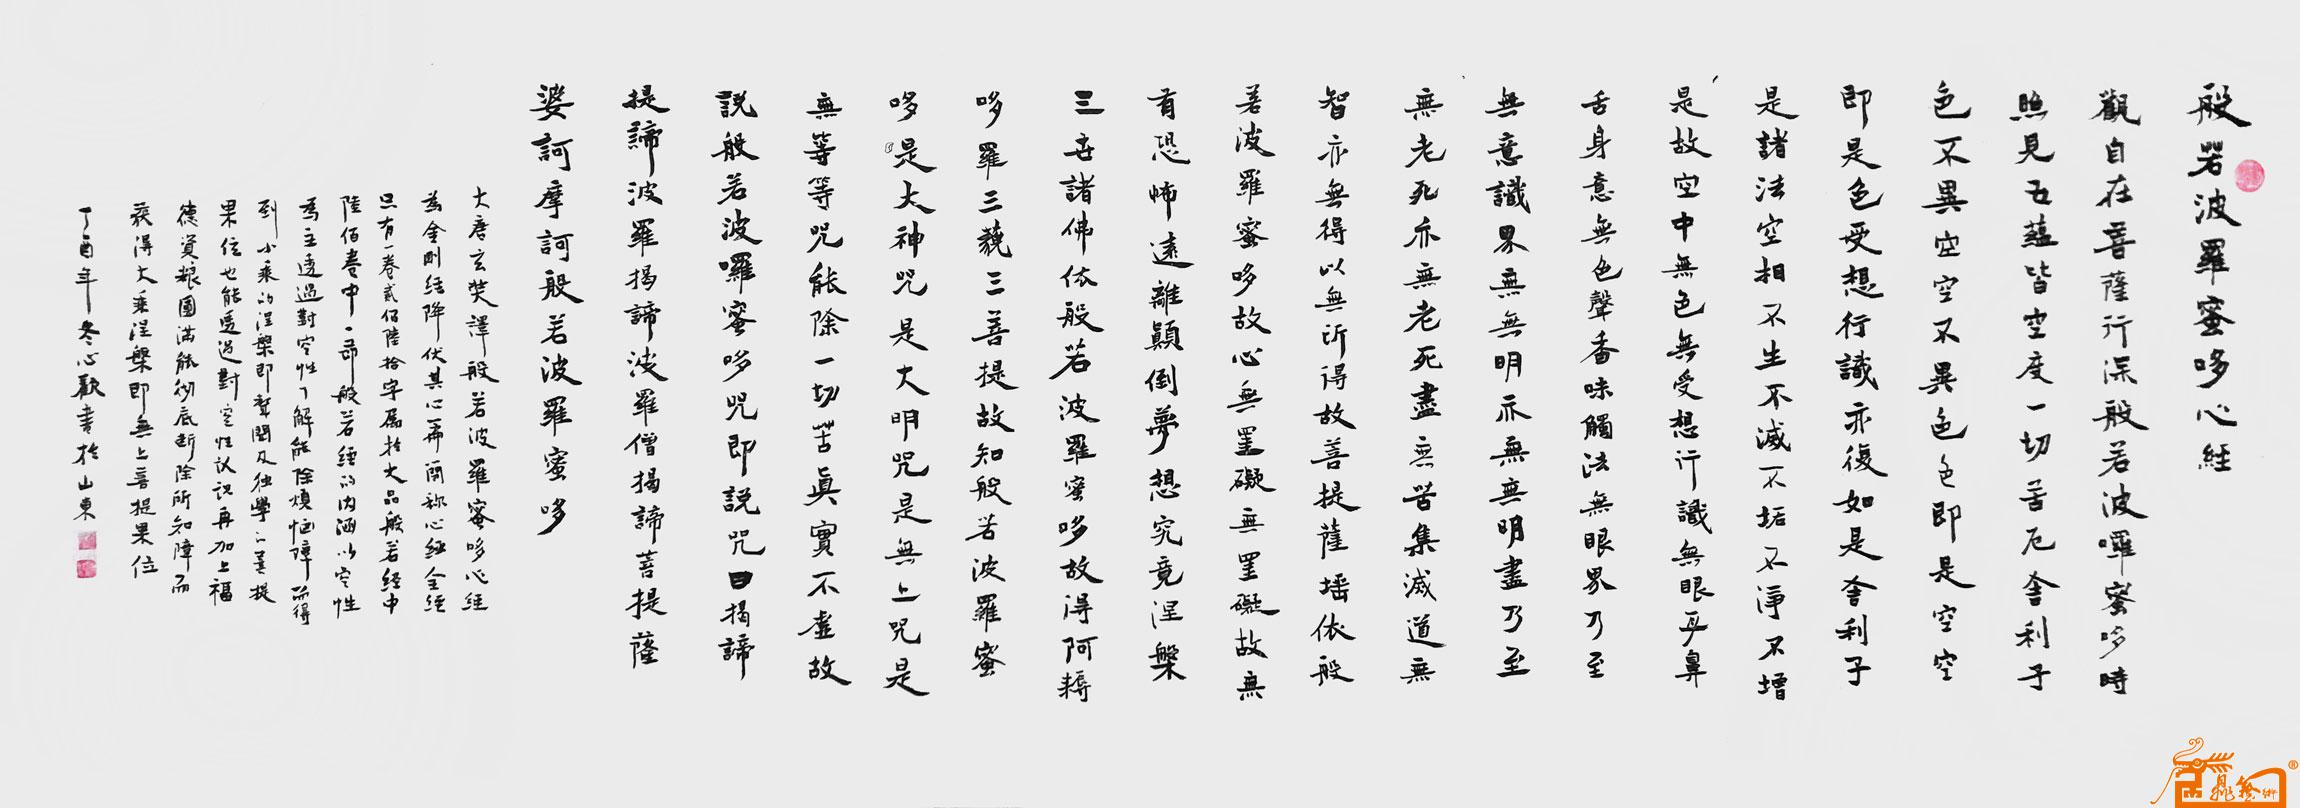 般若波羅蜜哆心経
觀自在菩薩行深般若波囉蜜哆時
照見五蘊皆空度一切苦厄舍利子
色不異空空不異色色即是空空
即是色受想行識亦復如是舍利子
是諸法空相不生不滅不垢不淨不增
是故空中無色無受想行識無眼耳鼻
舌身意無色聲香味觸法無眼界乃至
無意識界無無明亦無無明盡乃至
無老死亦無老死盡無苦集滅道無
智亦無得以無所得故菩提薩埵依般
若波羅蜜哆故心無罣礙無罣礙故無
有恐怖遠離顛倒夢想究竟涅槃
三世諸佛依般若波羅蜜哆故得阿耨
哆羅三藐三菩提故知般若波羅蜜
哆是大神咒是大明咒是無上咒是
無等等咒能除一切苦真實不虛故
説般若波囉蜜哆咒即説咒曰揭諦
提諦波羅揭諦波羅僧揭諦菩提薩
婆訶摩訶般若波羅蜜哆
大唐玄奘譯般若波羅蜜哆心経
為金剛経降伏其心篇簡称心経全経
只有一卷貳佰陸拾字屬於大品般若経中
陸佰卷中一節般若経的内涵以空性
為主透過對空性了解能除煩惱障而得
到小乘的涅槃即聲聞及独學之菩提
果位也能透過對空性认识再加上福
德資粮圓滿能彻底断除所知障而
获得大乘涅槃即無上菩提果位
丁酉年冬心歡書於山東